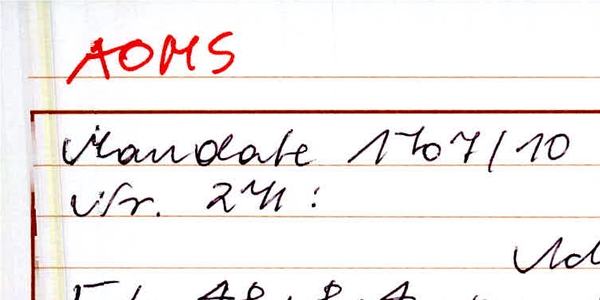 AOMS
Mandate 1707/10
Nr. 241: